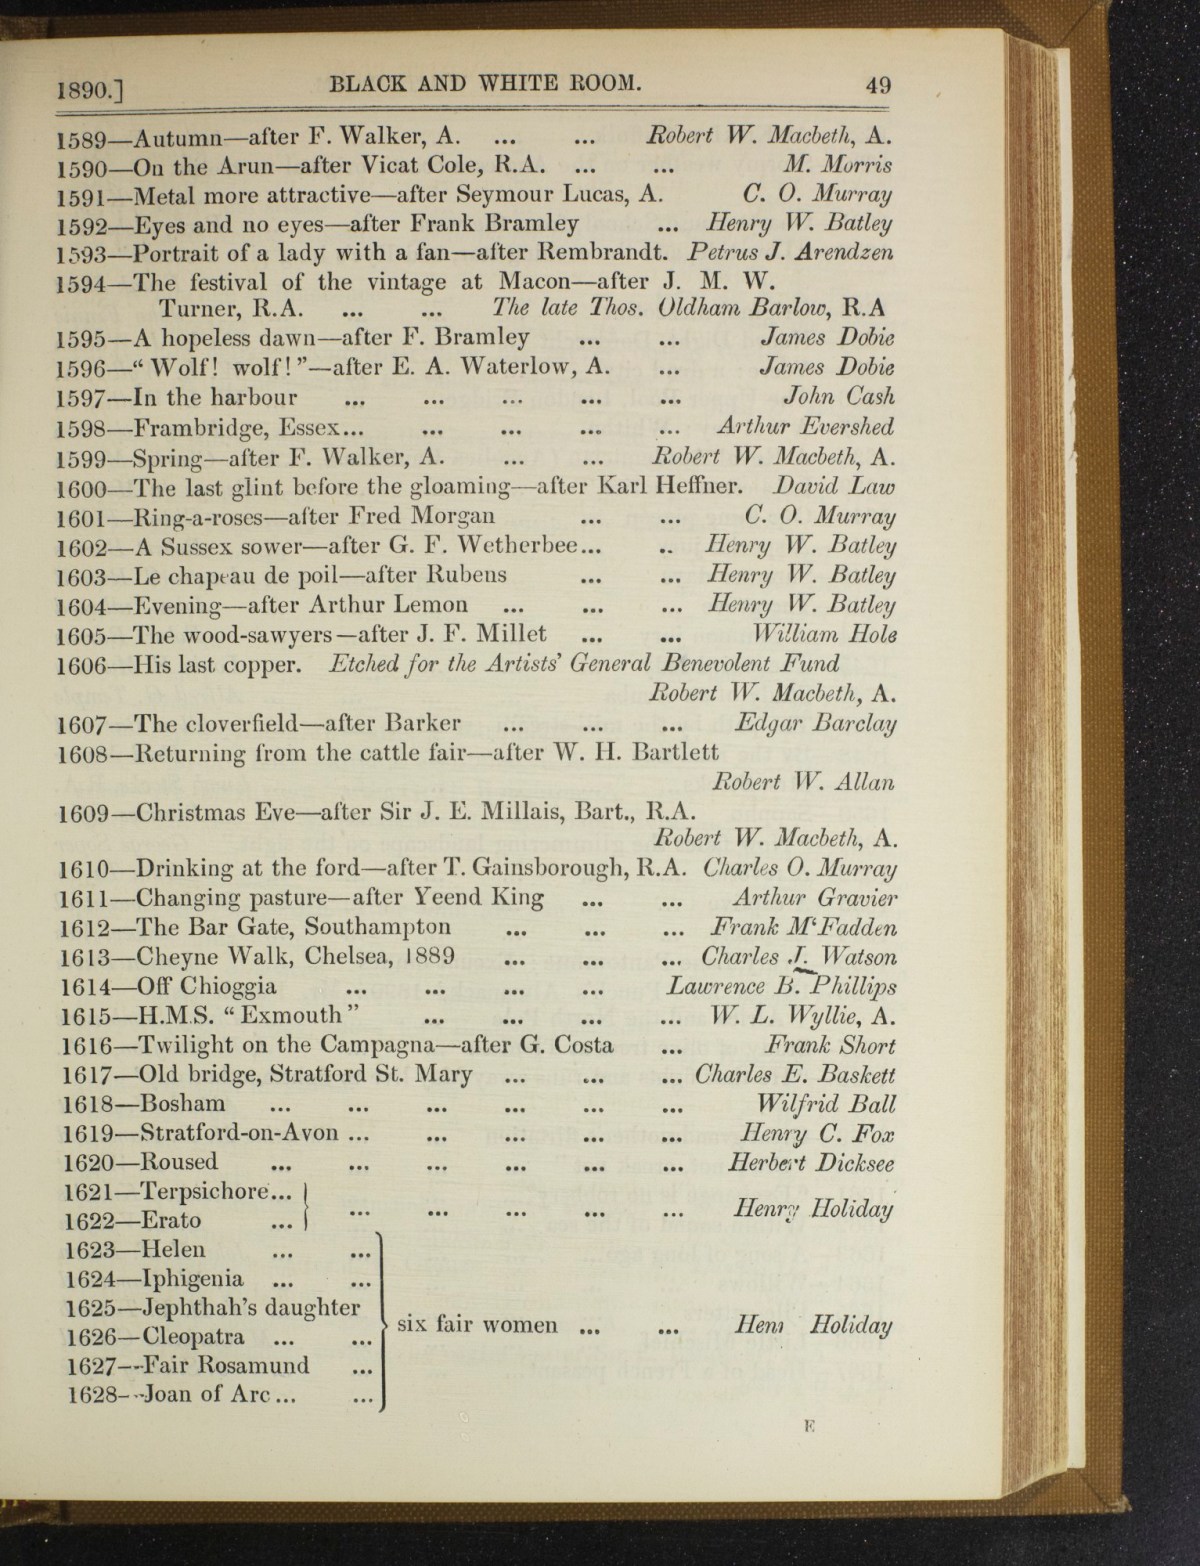 1890.] BLACK AND WHITE ROOM. 49
1589—Autumn—after F. Walker, A. ... ... Robert W. Macbeth, A.
1590—On the Arun—after Vicat Cole, R.A. ... ... M. Morris
1591—Metal more attractive—after Seymour Lucas, A. C. O. Murray
1592—Eyes and no eyes—after Frank Bramley ... Henry W. Batley
1593—Portrait of a lady with a fan—after Rembrandt. Petrus J. Arendzen
1594—The festival of the vintage at Macon—after J. M. W.
Turner, R.A. ... ... The late Thos. Oldham Barlow, R.A
1595—A hopeless dawn—after F. Bramley ... ... James Dobie
1596—“ Wolf! wolf! ”—after E. A. Waterlow, A. ... James Dobie
1597—In the harbour ... ... ... ... ... John Cash
1598—Frambridge, Essex... ... ... ... ... Arthur Evershed
1599—Spring—after F. Walker, A. ... ... Robert W. Macbeth, A.
1600—The last glint before the gloaming—after Karl Heffner. David Law
1601—Ring-a-roses—after Fred Morgan ... ... C. O. Murray
1602—A Sussex sower—after G. F. Wetherbee... .. Henry W. Batley
1603—Le chapeau de poil—after Rubens ... ... Henry W. Batley
1604—Evening—after Arthur Lemon ... ... ... Henry W. Batley
1605—The wood-sawyers—after J. F. Millet ... ... William Hole
1606—His last copper. Etched for the Artists’ General Benevolent Fund
Robert W. Macbeth, A.
1607—The cloverfield—after Barker ... ... ... Edgar Barclay
1608—Returning from the cattle fair—after W. H. Bartlett
Robert W. Allan
1609—Christmas Eve—after Sir J. E. Millais, Bart., R.A.
Robert W. Macbeth, A.
1610—Drinking at the ford—after T. Gainsborough, R.A. Charles O. Murray
1611—Changing pasture—after Yeend King ... ... Arthur Gravier
1612—The Bar Gate, Southampton ... ... ... Frank M‘Fadden
1613—Cheyne Walk, Chelsea, 1889 ... ... ... Charles J. Watson
1614—Off Chioggia ... ... ... ... Lawrence B. Phillips
1615—H.M.S. “ Exmouth ” ... ... ... ... W. L. Wyllie, A.
1616—Twilight on the Campagna—after G. Costa ... Frank Short
1617—Old bridge, Stratford St. Mary ... ... ... Charles E. Baskett
1618—Bosham ... ... ... ... ... ... Wilfrid Ball
1619—Stratford-on-Avon ... ... ... ... ... Henry C. Fox
1620—Roused ... ... ... ... ... ... Herbert Dicksee
1621—Terpsichore...
1622—Erato ... ... ... ... ... ... Henry Holiday
1623—Helen ... ...
1624—Iphigenia ... ...
1625—Jephthah’s daughter
1626—Cleopatra ... ... six fair women ... ... Hen Holiday
1627—Fair Rosamund ...
1628—Joan of Arc ... ...
E